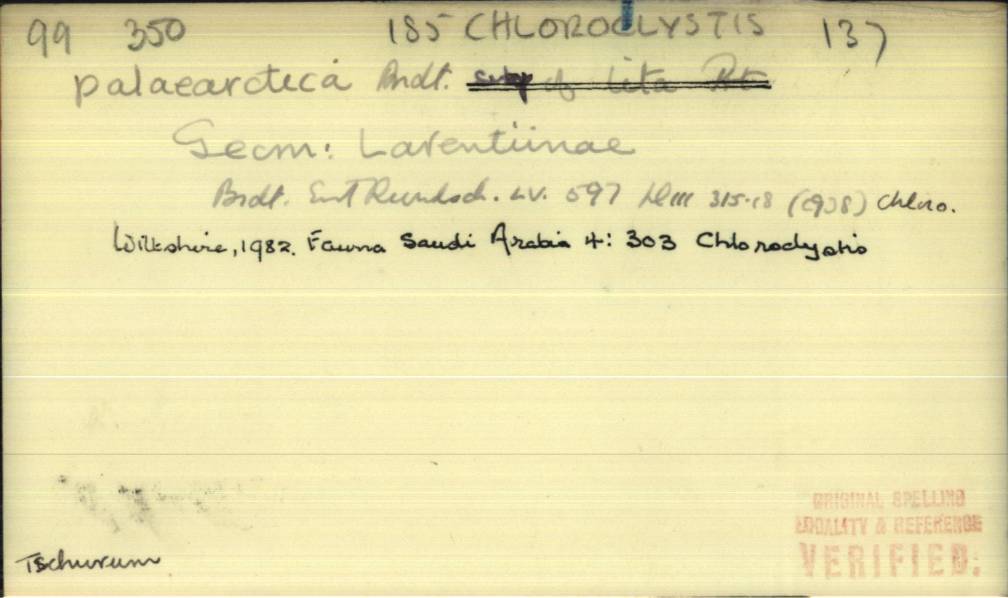 99 350 185 CHLOROCLYSTIS 137
palaearctica Brdt. subsp of lita Prt
Geom: Larentiinae
Brdt. Ent Rundsch. LV. 597 315-18 (1938) Chloro.
Wiltshire, 1982. Fauna Saudi Arabia 4: 303 Chloroclystis
Tschurum
ORIGINAL SPELLING
LOCALITY & REFERENCE
VERIFIED: